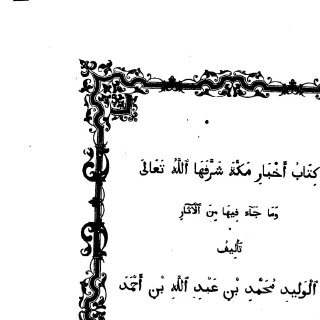 كِتَابُ أَخْبَارِ مَكَّةَ شَرَّفَهَا اللَّهُ تَعَالَى
وَمَا جَاءَ فِيهَا مِنَ الْآثَارِ
تَأْلِيفُ
الْوَلِيدِ مُحَمَّدِ بْنِ عَبْدِ اللَّهِ بْنِ أَحْمَدَ